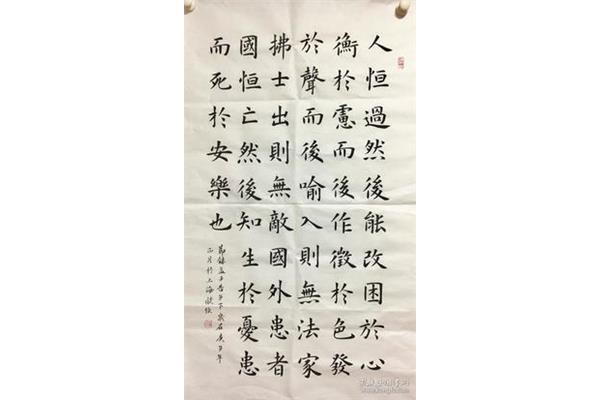 人恒過然後能改困於心
衡於慮而後作徵於色發
於聲而後喻入則無法家
拂士出則無敵國外患者
國恒亡然後知生於憂患
而死於安樂也
節錄孟子告子下
正月於上海